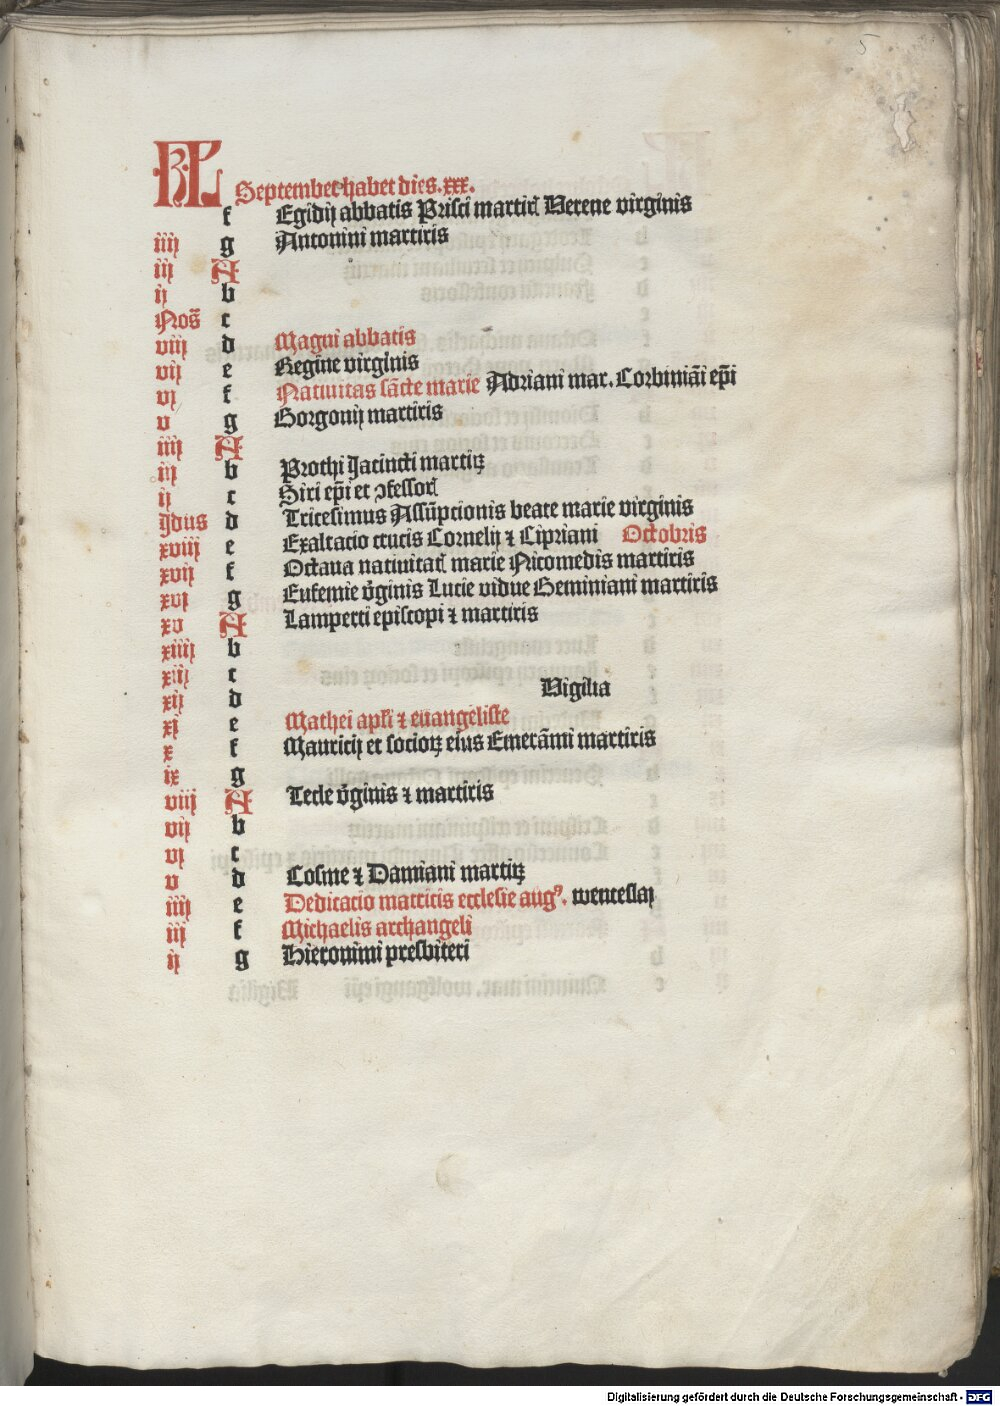 5
KL September habet dies .xxx.
f Egidij abbatis Prisci martiris Verene virginis
iiij g Antonini martiris
iij A
ij b
Noñ c
viij d Magni abbatis
vij e Regine virginis
vj f Natiuitas sãcte marie Adriani mar. Corbiniãi ep̃i
v g Gorgonij martiris
iiij A
iij b Prothi Jacincti martiꝝ
ij c Siri ep̃i et ꝯfessoꝛ
Jdus d Tricesimus Assũpcionis beate marie virginis
xviij e Exaltacio crucis Cornelij ⁊ Cipriani Octobris
xvij f Octaua natiuitatꝭ marie Nicomedis martiris
xvj g Eufemie v̾ginis Lucie vidue Geminiani martiris
xv A Lamperti episcopi ⁊ martiris
xiiij b
xiij c
xij d Vigilia
xj e Mathei apl̃i ⁊ euangeliste
x f Mauricij et socioꝝ eius Emerãmi martiris
ix g
viij A Tecle v̾ginis ⁊ martiris
vij b
vj c
v d Cosme ⁊ Damiani martiꝝ
iiij e Dedicacio matricis ecclesie augꝰ. wenceslaj
iij f Michaelis archangeli
ij g Hieronimi presbiteri
Digitalisierung gefördert durch die Deutsche Forschungsgemeinschaft - DFG